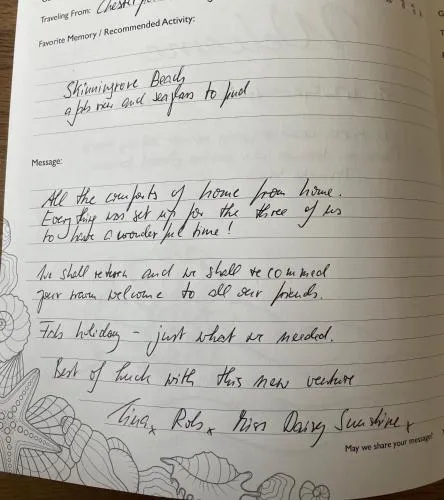 Traveling From: Chester
Favorite Memory / Recommended Activity:
Skinningrove Beach
a fab view and seaglass to find
Message:
All the comforts of home from home.
Everything was set up for the three of us
to have a wonderful time!
We shall return and we shall recommed
your warm welcome to all our friends.
Fab holiday - just what we needed.
Best of luck with this new venture
Tina x Rob x Miss Daisy Sunshine x
May we share your message?